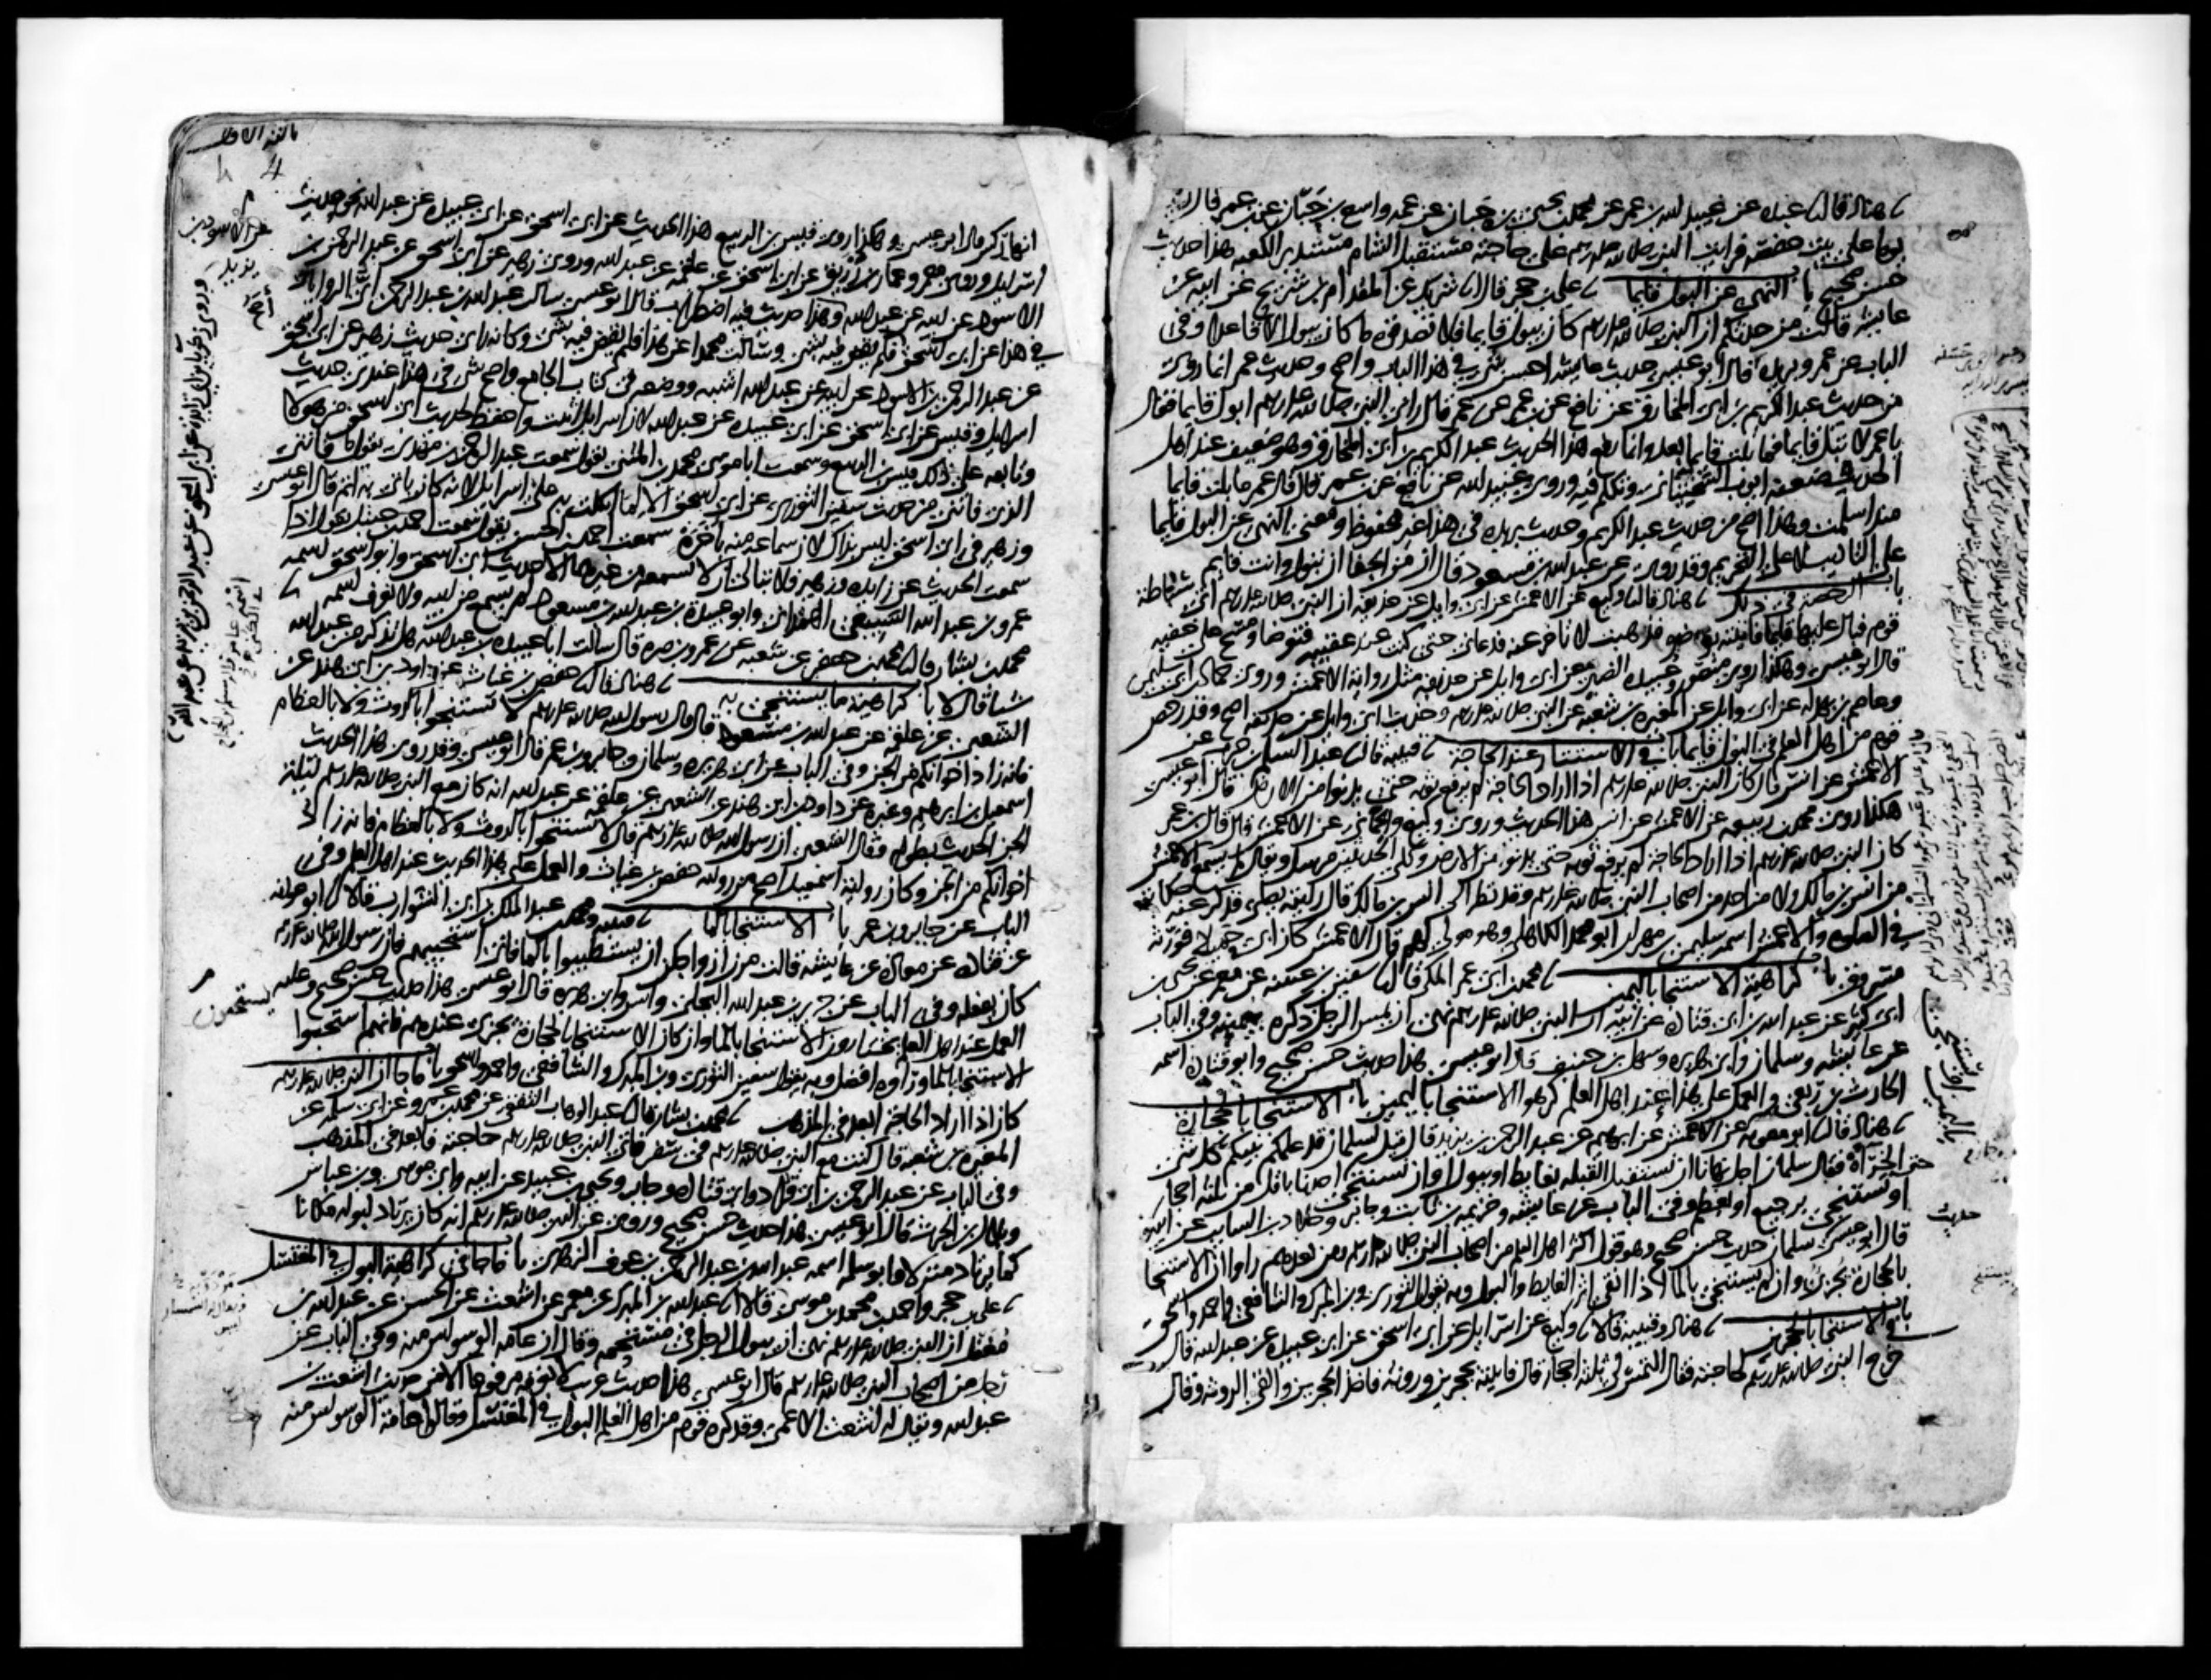 هناد قال نا عبده عن عبيد الله بن عمر عن محمد بن يحيى بن حبان عن عمه واسع بن حبان عن ابن عمر قال رقيت
يوما على بيت حفصة فرايت النبي صلى الله عليه وسلم على حاجته مستقبل الشام مستدبر الكعبه هذا حديث
حسن صحيح باب النهي عن البول قايما نا علي بن حجر قال انا شريك عن المقدام بن شريح عن ابيه عن
عايشه قالت من حدثكم ان النبي صلى الله عليه وسلم كان يبول قايما فلا تصدقوه ما كان يبول الا قاعدا وفي
الباب عن عمر وبريده قال ابو عيسى حديث عايشه احسن شي في هذا الباب واصح وحديث عمر انما روي
من حديث عبد الكريم بن ابي المخارق عن نافع عن ابن عمر عن عمر قال راني النبي صلى الله عليه وسلم ابول قايما فقال
يا عمر لا تبل قايما فما بلت قايما بعد وانما رفع هذا الحديث عبد الكريم بن ابي المخارق وهو ضعيف عند اهل
الحديث ضعفه ايوب السختياني وتكلم فيه وروى عبيد الله عن نافع عن ابن عمر قال قال عمر ما بلت قايما
منذ اسلمت وهذا اصح من حديث عبد الكريم وحديث بريده في هذا غير محفوظ ومعنى النهي عن البول قايما
على التاديب لا على التحريم وقد روي عن عبد الله بن مسعود قال ان من الجفا ان تبول وانت قايم
باب الرخصة في ذلك نا هناد قال نا وكيع عن الاعمش عن ابي وايل عن حذيفه ان النبي صلى الله عليه وسلم اتى سباطة
قوم فبال عليها قايما فاتيته بوضو فذهبت لاتاخر عنه فدعاني حتى كنت عند عقبيه فتوضا ومسح على خفيه
قال ابو عيسى وهكذا روى منصور وعبيده الضبي عن ابي وايل عن حذيفه مثل رواية الاعمش وروى حماد بن ابي سليمن
وعاصم بن بهدله عن ابي وايل عن المغيره بن شعبه عن النبي صلى الله عليه وسلم وحديث ابي وايل عن حذيفه اصح وقد رخص
قوم من اهل العلم في البول قايما باب في الاستتار عند الحاجة نا قتيبه قال نا عبد السلام بن حرب عن
الاعمش عن انس قال كان النبي صلى الله عليه وسلم اذا اراد الحاجة لم يرفع ثوبه حتى يدنو من الارض قال ابو عيسى
هكذا روى محمد بن ربيعه عن الاعمش عن انس هذا الحديث وروى وكيع والحماني عن الاعمش قال قال ابن عمر
كان النبي صلى الله عليه وسلم اذا اراد الحاجة لم يرفع ثوبه حتى يدنو من الارض وكلى الحديثين مرسل ويقال لم يسمع الاعمش
من انس بن مالك ولا من احد من اصحاب النبي صلى الله عليه وسلم وقد نظر الى انس بن مالك قال رايته يصلي فذكر عنه حكاية
في الصلوه والاعمش اسمه سليمن بن مهران ابو محمد الكاهلي وهو مولى لهم قال الاعمش كان ابي حميلا فورثه
مسروق باب كراهية الاستنجا باليمين نا محمد بن ابي عمر المكي قال نا سفين بن عيينه عن معمر عن يحيى بن
ابي كثير عن عبد الله بن ابي قتاده عن ابيه ان النبي صلى الله عليه وسلم نهى ان يمس الرجل ذكره بيمينه وفي الباب
عن عايشه وسلمان وابي هريره وسهل بن حنيف قال ابو عيسى هذا حديث حسن صحيح وابو قتاده اسمه
الحارث بن ربعي والعمل على هذا عند اهل العلم كرهوا الاستنجا باليمين باب الاستنجا بالحجارة
نا هناد قال نا ابو معويه عن الاعمش عن ابرهيم عن عبد الرحمن بن يزيد قال قيل لسلمان قد علمكم نبيكم كل شي
حتى الخراة فقال سلمان اجل نهانا ان نستقبل القبله بغايط او ببول او ان نستنجي احدنا باقل من ثلثة احجار
او نستنجي برجيع او بعظم وفي الباب عن عايشه وخزيمه بن ثابت وجابر وخلاد بن السايب عن ابيه
قال ابو عيسى سلمان حديث حسن صحيح وهو قول اكثر اهل العلم من اصحاب النبي صلى الله عليه وسلم ومن بعدهم راوا ان الاستنجا
بالحجارة يجزئ وان لم يستنجي بالما اذا انقى اثر الغايط والبول وبه يقول الثوري وبن المبرك والشافعي واحمد واسحق
باب في الاستنجا بالحجرين نا هناد وقتيبه قالا نا وكيع عن اسرايل عن ابي اسحق عن ابي عبيده عن عبد الله قال
خرج النبي صلى الله عليه وسلم لحاجته فقال التمس لي ثلثة احجار قال فاتيته بحجرين وروثه فاخذ الحجرين والقى الروثه وقال
انها ركس قال ابو عيسى وهكذا روى قيس بن الربيع هذا الحديث عن ابي اسحق عن ابي عبيده عن عبد الله نحو حديث
اسرايل وروى معمر وعمار بن رزيق عن ابي اسحق عن علقمه عن عبد الله وروى زهير عن ابي اسحق عن عبد الرحمن بن
الاسود عن ابيه عن عبد الله وهذا حديث فيه اضطراب قال ابو عيسى سالت عبد الله بن عبد الرحمن اي الروايات
في هذا عن ابي اسحق اصح فلم يقض فيه بشي وسالت محمدا عن هذا فلم يقض فيه بشي وكانه راى حديث زهير عن ابي اسحق
عن عبد الرحمن بن الاسود عن ابيه عن عبد الله اشبه ووضعه في كتاب الجامع واصح شي في هذا عندي حديث
اسرايل وقيس عن ابي اسحق عن ابي عبيده عن عبد الله لان اسرايل اثبت واحفظ لحديث ابي اسحق من هولا
وتابعه على ذلك قيس بن الربيع وسمعت ابا موسى محمد بن المثنى يقول سمعت عبد الرحمن بن مهدي يقول ما فاتني
الذي فاتني من حديث سفين الثوري عن ابي اسحق الا لما اتكلت به على اسرايل لانه كان ياتي به اتم قال ابو عيسى
وزهير في ابي اسحق ليس بذاك لان سماعه منه باخرة سمعت احمد بن الحسن يقول سمعت احمد بن حنبل يقول اذا
سمعت الحديث عن زايده وزهير فلا تبالي ان لا تسمعه من غيرهما الا حديث ابي اسحق وابو اسحق اسمه
عمرو بن عبد الله السبيعي الهمداني وابو عبيدة بن عبد الله بن مسعود لم يسمع من ابيه ولا نعرف اسمه نا
محمد بن بشار قال نا محمد بن جعفر عن شعبه عن عمرو بن مره قال سالت ابا عبيده بن عبد الله هل تذكر من عبد الله
شيا قال لا باب كراهية ما يستنجى به نا هناد قال نا حفص بن غياث عن داود بن ابي هند عن
الشعبي عن علقمه عن عبد الله بن مسعود قال قال رسول الله صلى الله عليه وسلم لا تستنجوا بالروث ولا بالعظام
فانه زاد اخوانكم من الجن وفي الباب عن ابي هريره وسلمان وجابر وبن عمر قال ابو عيسى وقد روى هذا الحديث
اسمعيل بن ابرهيم وغيره عن داود بن ابي هند عن الشعبي عن علقمه عن عبد الله انه كان مع النبي صلى الله عليه وسلم ليلة
الجن الحديث بطوله فقال الشعبي ان رسول الله صلى الله عليه وسلم قال لا تستنجوا بالروث ولا بالعظام فانه زاد
اخوانكم من الجن وكان رواية اسمعيل اصح من رواية حفص بن غياث والعمل على هذا الحديث عند اهل العلم وفي
الباب عن جابر وبن عمر باب الاستنجا بالما نا قتيبه ومحمد بن عبد الملك بن ابي الشوارب قالا نا ابو عوانه
عن قتاده عن معاذه عن عايشه قالت مرن ازواجكن ان يستطيبوا بالما فاني استحييهم فان رسول الله صلى الله عليه وسلم
كان يفعله وفي الباب عن جرير بن عبد الله البجلي وانس وابي هريره قال ابو عيسى هذا حديث حسن صحيح وعليه
العمل عند اهل العلم يختارون الاستنجا بالما وان كان الاستنجا بالحجارة يجزئ عندهم فانهم استحبوا
الاستنجا بالما وراوه افضل وبه يقول سفين الثوري وبن المبرك والشافعي واحمد واسحق باب ما جا ان النبي صلى الله عليه وسلم
كان اذا اراد الحاجة ابعد في المذهب نا محمد بن بشار قال نا عبد الوهاب الثقفي عن محمد بن عمرو عن ابي سلمه عن
المغيره بن شعبه قال كنت مع النبي صلى الله عليه وسلم في سفر فاتى النبي صلى الله عليه وسلم حاجته فابعد في المذهب
وفي الباب عن عبد الرحمن بن ابي قراد وابي قتاده وجابر ويحيى بن عبيد عن ابيه وابي موسى وبن عباس
وبلال بن الحرث قال ابو عيسى هذا حديث حسن صحيح وروي عن النبي صلى الله عليه وسلم انه كان يرتاد لبوله مكانا
كما يرتاد منزلا وابو سلمه اسمه عبد الله بن عبد الرحمن بن عوف الزهري باب ما جا في كراهية البول في المغتسل
نا علي بن حجر واحمد بن محمد بن موسى قالا نا عبد الله بن المبرك عن معمر عن اشعث عن الحسن عن عبد الله بن
مغفل ان النبي صلى الله عليه وسلم نهى ان يبول الرجل في مستحمه وقال ان عامة الوسواس منه وفي الباب عن
رجل من اصحاب النبي صلى الله عليه وسلم قال ابو عيسى هذا حديث غريب لا نعرفه مرفوعا الا من حديث اشعث بن
عبد الله ويقال له اشعث الاعمى وقد كره قوم من اهل العلم البول في المغتسل وقالوا عامة الوسواس منه